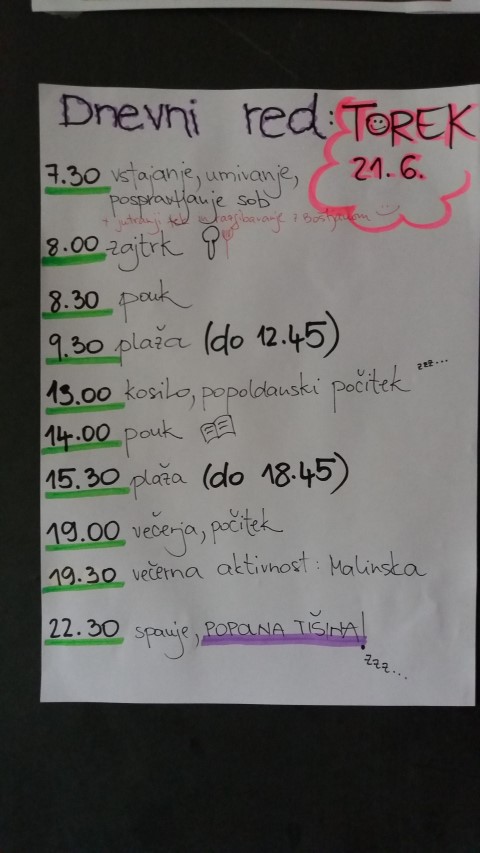 Dnevni red: TOREK
21.6.
7.30 vstajanje, umivanje,
pospravljanje sob
+ jutranji tek in razgibavanje z Boštjanom
8.00 zajtrk
8.30 pouk
9.30 plaža (do 12.45)
zzz...
13.00 kosilo, popoldanski počitek
14.00 pouk
15.30 plaža (do 18.45)
19.00 večerja, počitek
19.30 večerna aktivnost: Malinska
22.30 spanje, POPOLNA TIŠINA!
zzz...